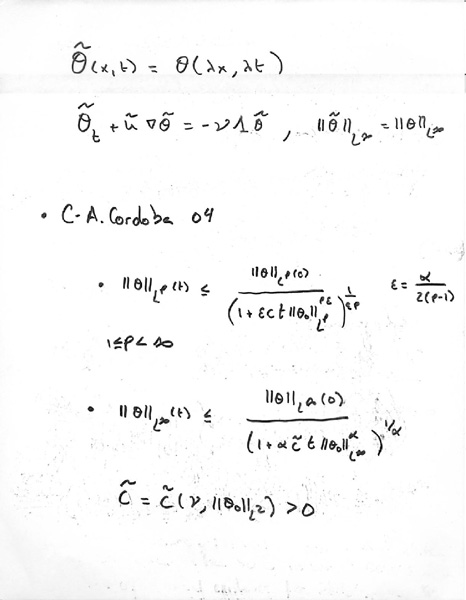 θ̃(x,t) = θ(λx, λt)
θ̃_t + ũ ∇θ̃ = -ν Λ θ̃ , ||θ̃||_{L^∞} = ||θ||_{L^∞}
• C-A. Cordoba 04
• ||θ||_{L^p}(t) ≤ ||θ||_{L^p}(0) / (1 + εct||θ₀||_{L^p}^{pε})^{1/(εp)} ε = α/(2(p-1))
1≤p<∞
• ||θ||_{L^∞}(t) ≤ ||θ||_{L^∞}(0) / (1 + α c̃ t ||θ₀||_{L^∞}^α)^{1/α}
C̃ = c̃(ν, ||θ₀||_{L²}) > 0